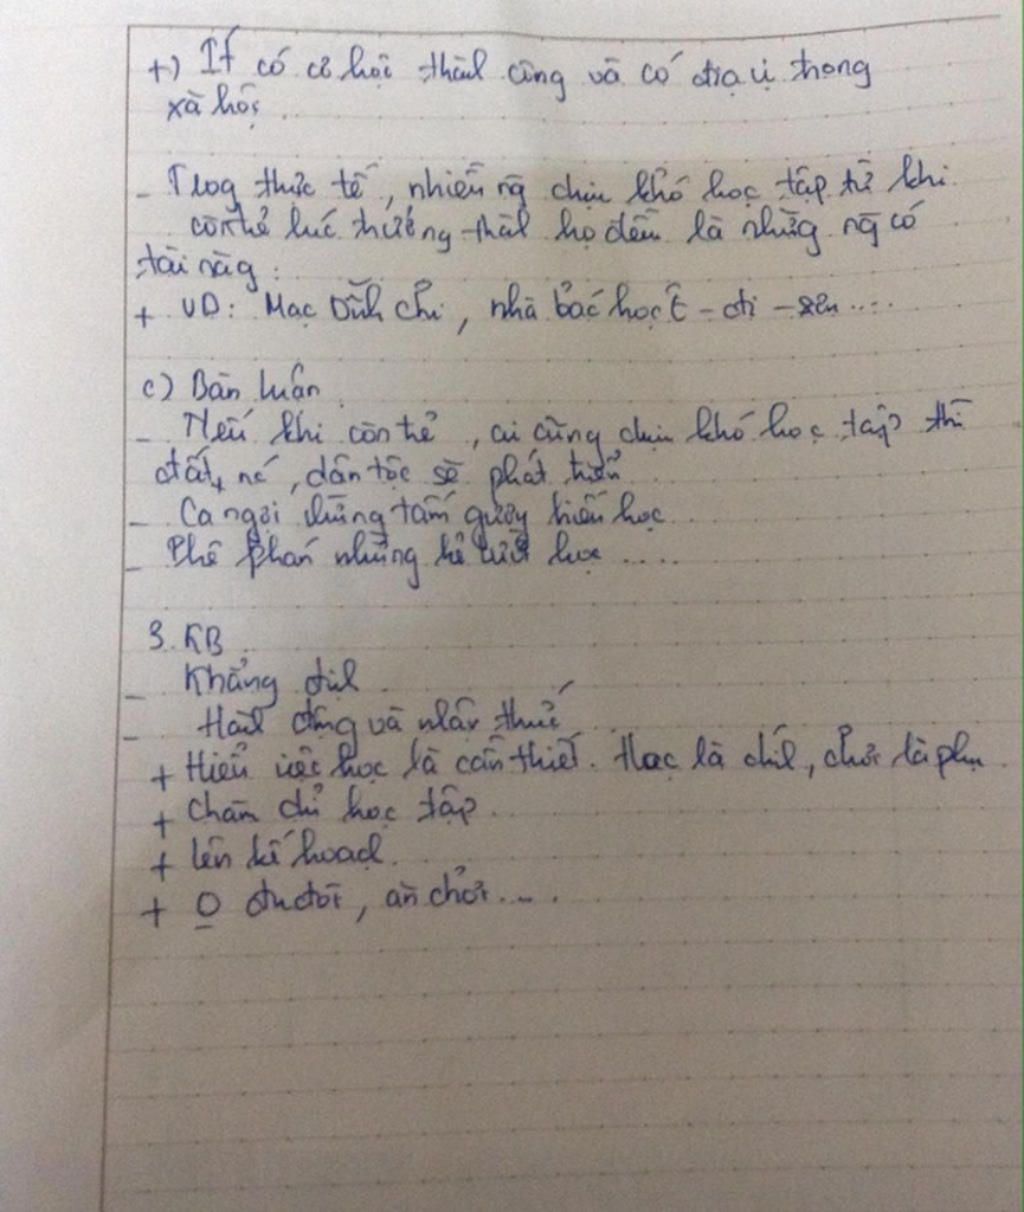 +) Ít có cơ hội thàh công và có địa vị trong
xã hội.
- Trog thực tế, nhiều ng chịu khó học tập từ khi
còn trẻ lúc trưởng thàh họ đều là những ng có
tài năg:
+ VD: Mạc Đĩnh Chi, nhà bác học Ê-đi-xơn....
c) Bàn luận
- Nếu khi còn trẻ, ai cũng chịu khó học tập thì
đất nc', dân tộc sẽ phát triển
- Ca ngợi những tấm gương hiếu học
- Phê phán những kẻ lười học .....
3. KB
- Khẳng địh
- Hàh động và nhận thức
+ Hiểu việc học là cần thiết. Học là chíh, chơi là phụ
+ Chăm chỉ học tập.
+ Lên kế hoạch.
+ O đua đòi, ăn chơi....